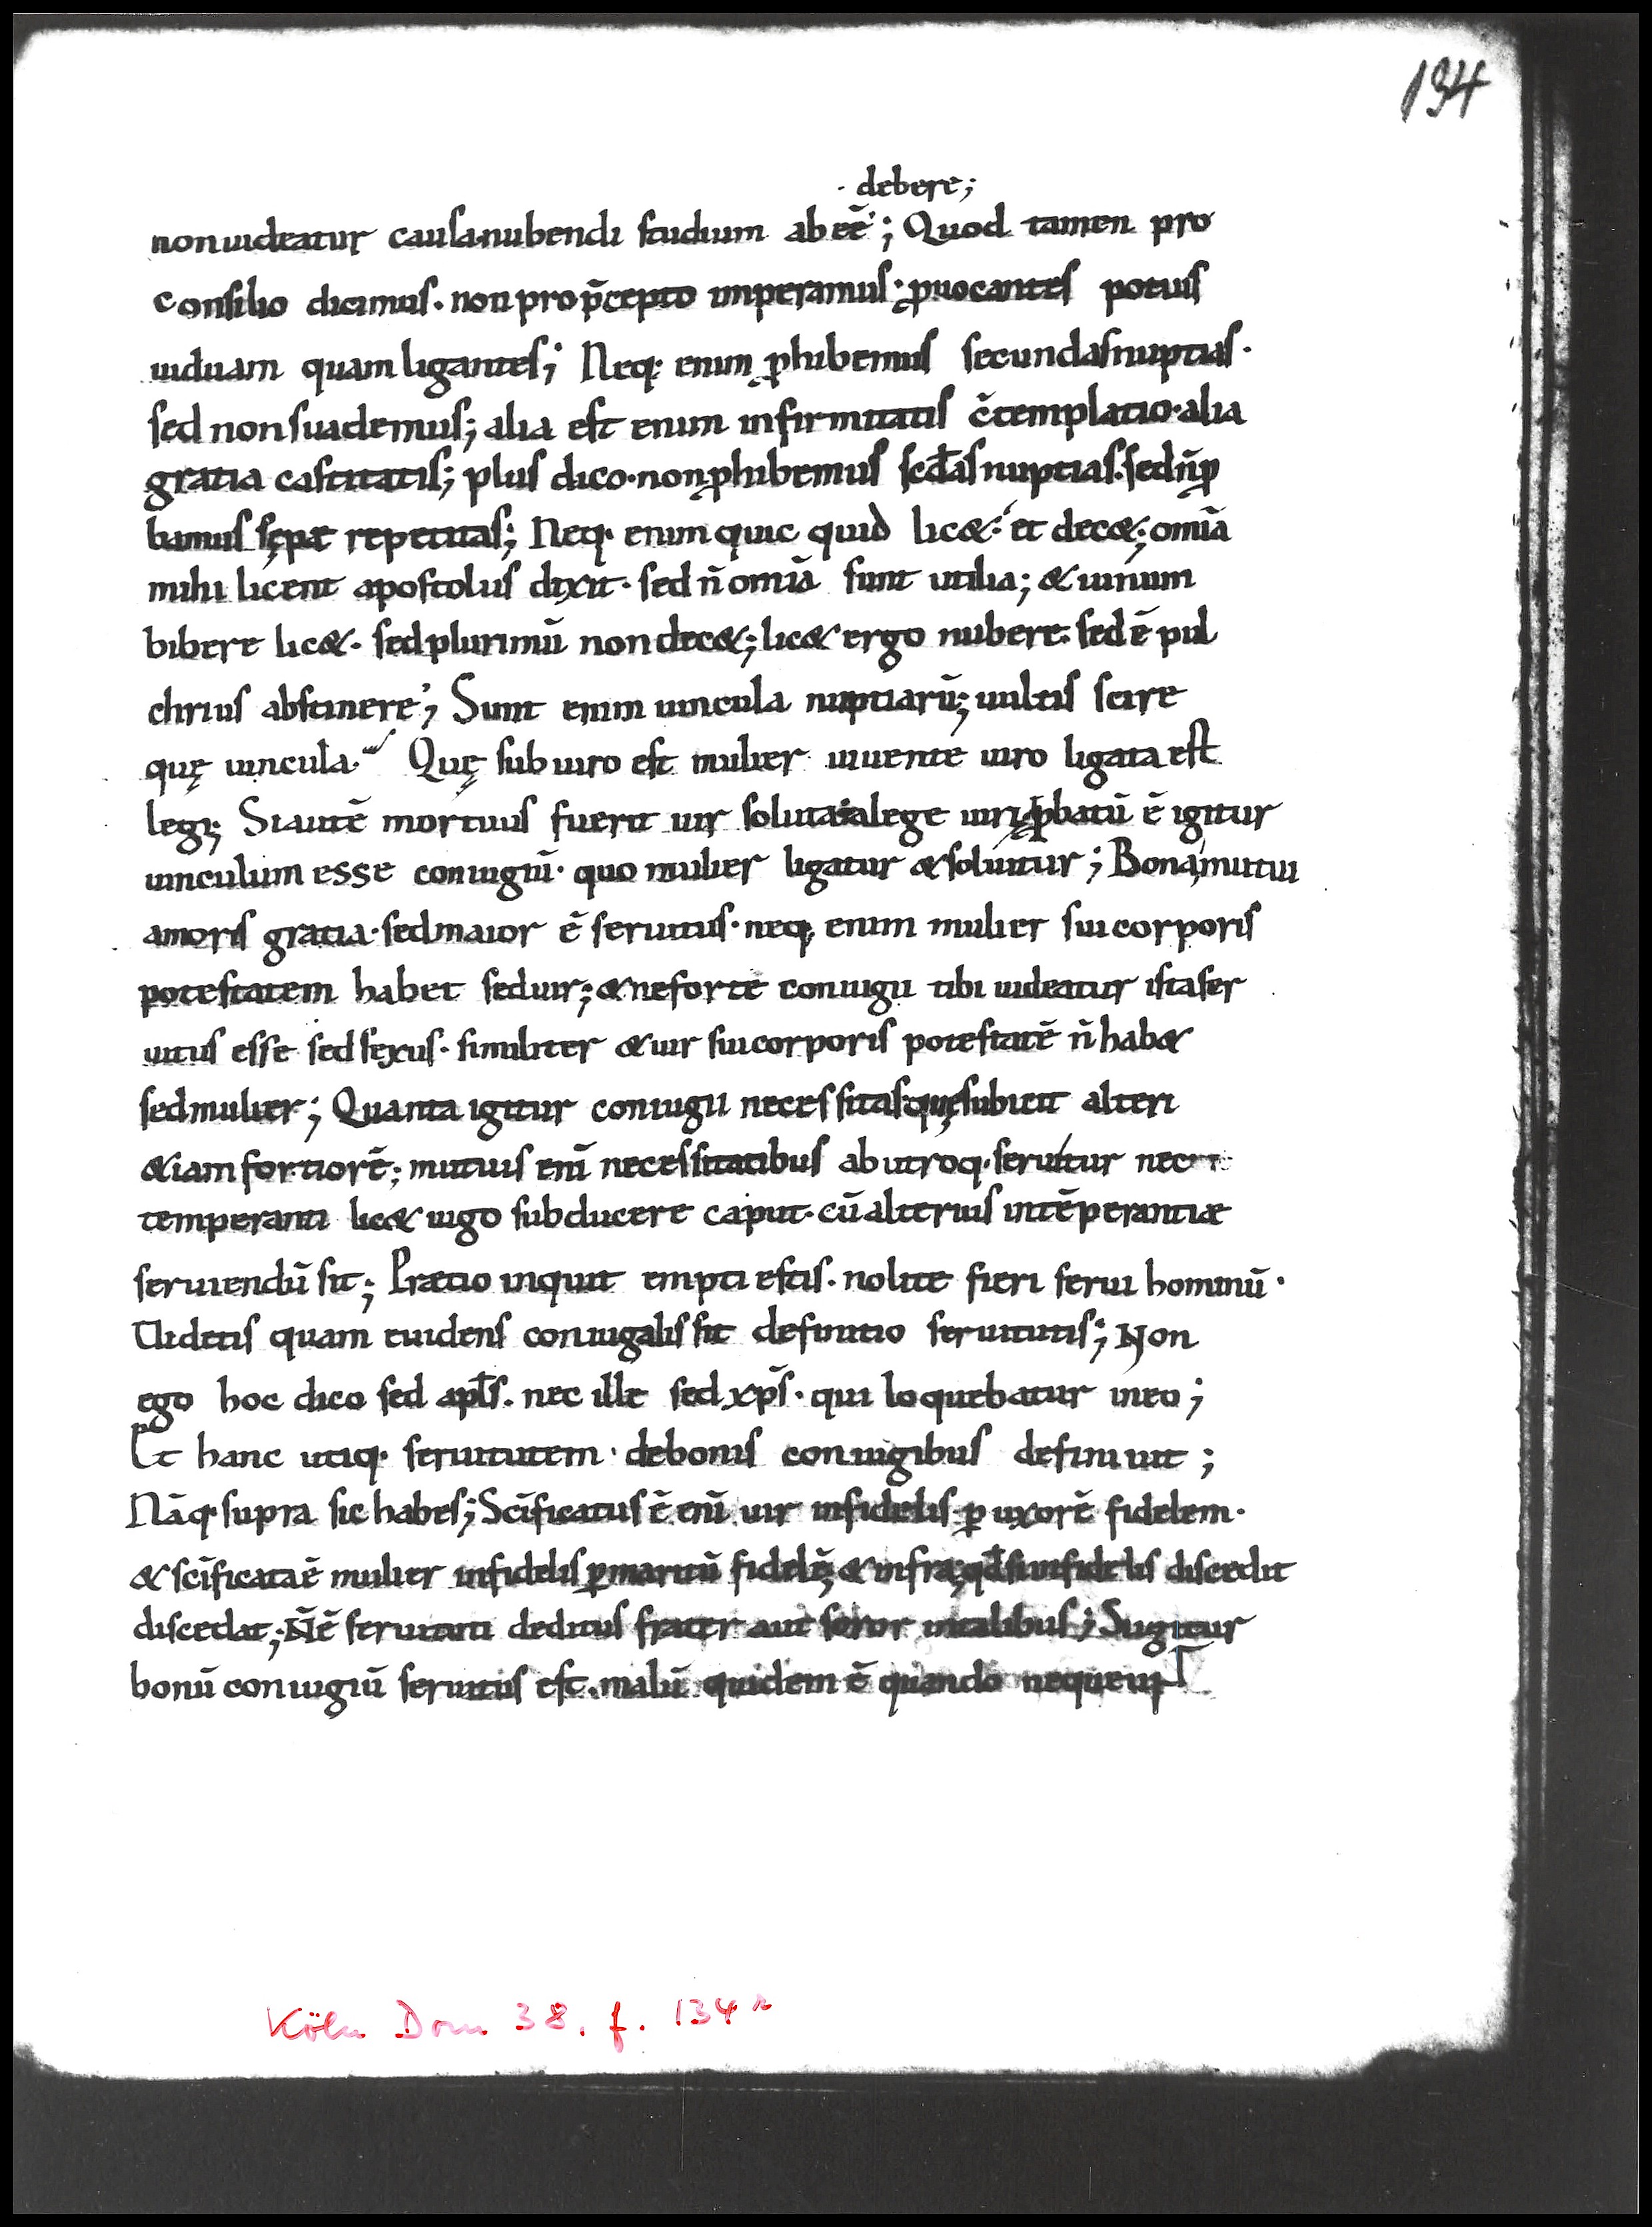 134
· debere;
non uideatur causa nubendi studium abeē; Quod tamen pro
consilio dicimus · non pro p̄cepto imperamus · ꝓuocantes potius
uiduam quam ligantes; Neq· enim ꝓhibemus secundas nuptias ·
sed non suademus; alia est enim infirmitatis c̄templatio · alia
gratia castitatis; plus dico · non ꝓhibemus scd̄as nuptias · sed n̄ ꝓ
bamus sępæ repetitas; Neq· enim quic quid lic& · et dec&; omīa
mihi licent apostolus dixit · sed n̄ omīa sunt utilia; & uinum
bibere lic& · sed plurimū non dec&; lic& ergo nubere · sed ē pul
chrius abstinere; Sunt enim uincula nuptiarū; uultis scire
quę uincula · Quę sub uiro est mulier uiuente uiro ligata est
legi; Si autē mortuus fuerit uir soluta a lege uiri; ꝓbatū ē igitur
uinculum esse coniugiū · quo mulier ligatur & soluitur; Bona, mutui
amoris gratia · sed maior ē seruitus · neq, enim mulier sui corporis
potestatem habet sed uir; & ne forte coniugii tibi uideatur ista ser
uitus esse sed sexus · similiter & uir sui corporis potestatē n̄ hab&
sed mulier; Quanta igitur coniugii necessitas quę subicit alteri
&iam fortiorē; mutuis enī necessitatibus ab utroq· seruitur nec
temperanti lic& iugo subducere caput · cū alterius intēperantiæ
seruiendū sit; Prætio inquit empti estis · nolite fieri serui hominū ·
Uidetis quam euidens coniugalis sit definitio seruitutis; Non
ego hoc dico sed apl̄s · nec ille sed xp̄s · qui loquebatur in eo;
Et hanc utiq· seruitutem · de bonis coniugibus definiuit;
Nāq· supra sic habes; Scīficatus ē enī uir infidelis ꝑ uxorē fidelem ·
& scīficata ē mulier infidelis ꝑ maritū fidelē; & infra; qd̄ si infidelis discedit
discedat; N̄ ē seruituti deditus frater aut soror in talibus; Si igitur
bonū coniugiū seruitus est · malū quidem ē quando nequeunt
Köln Dom 38. f. 134r